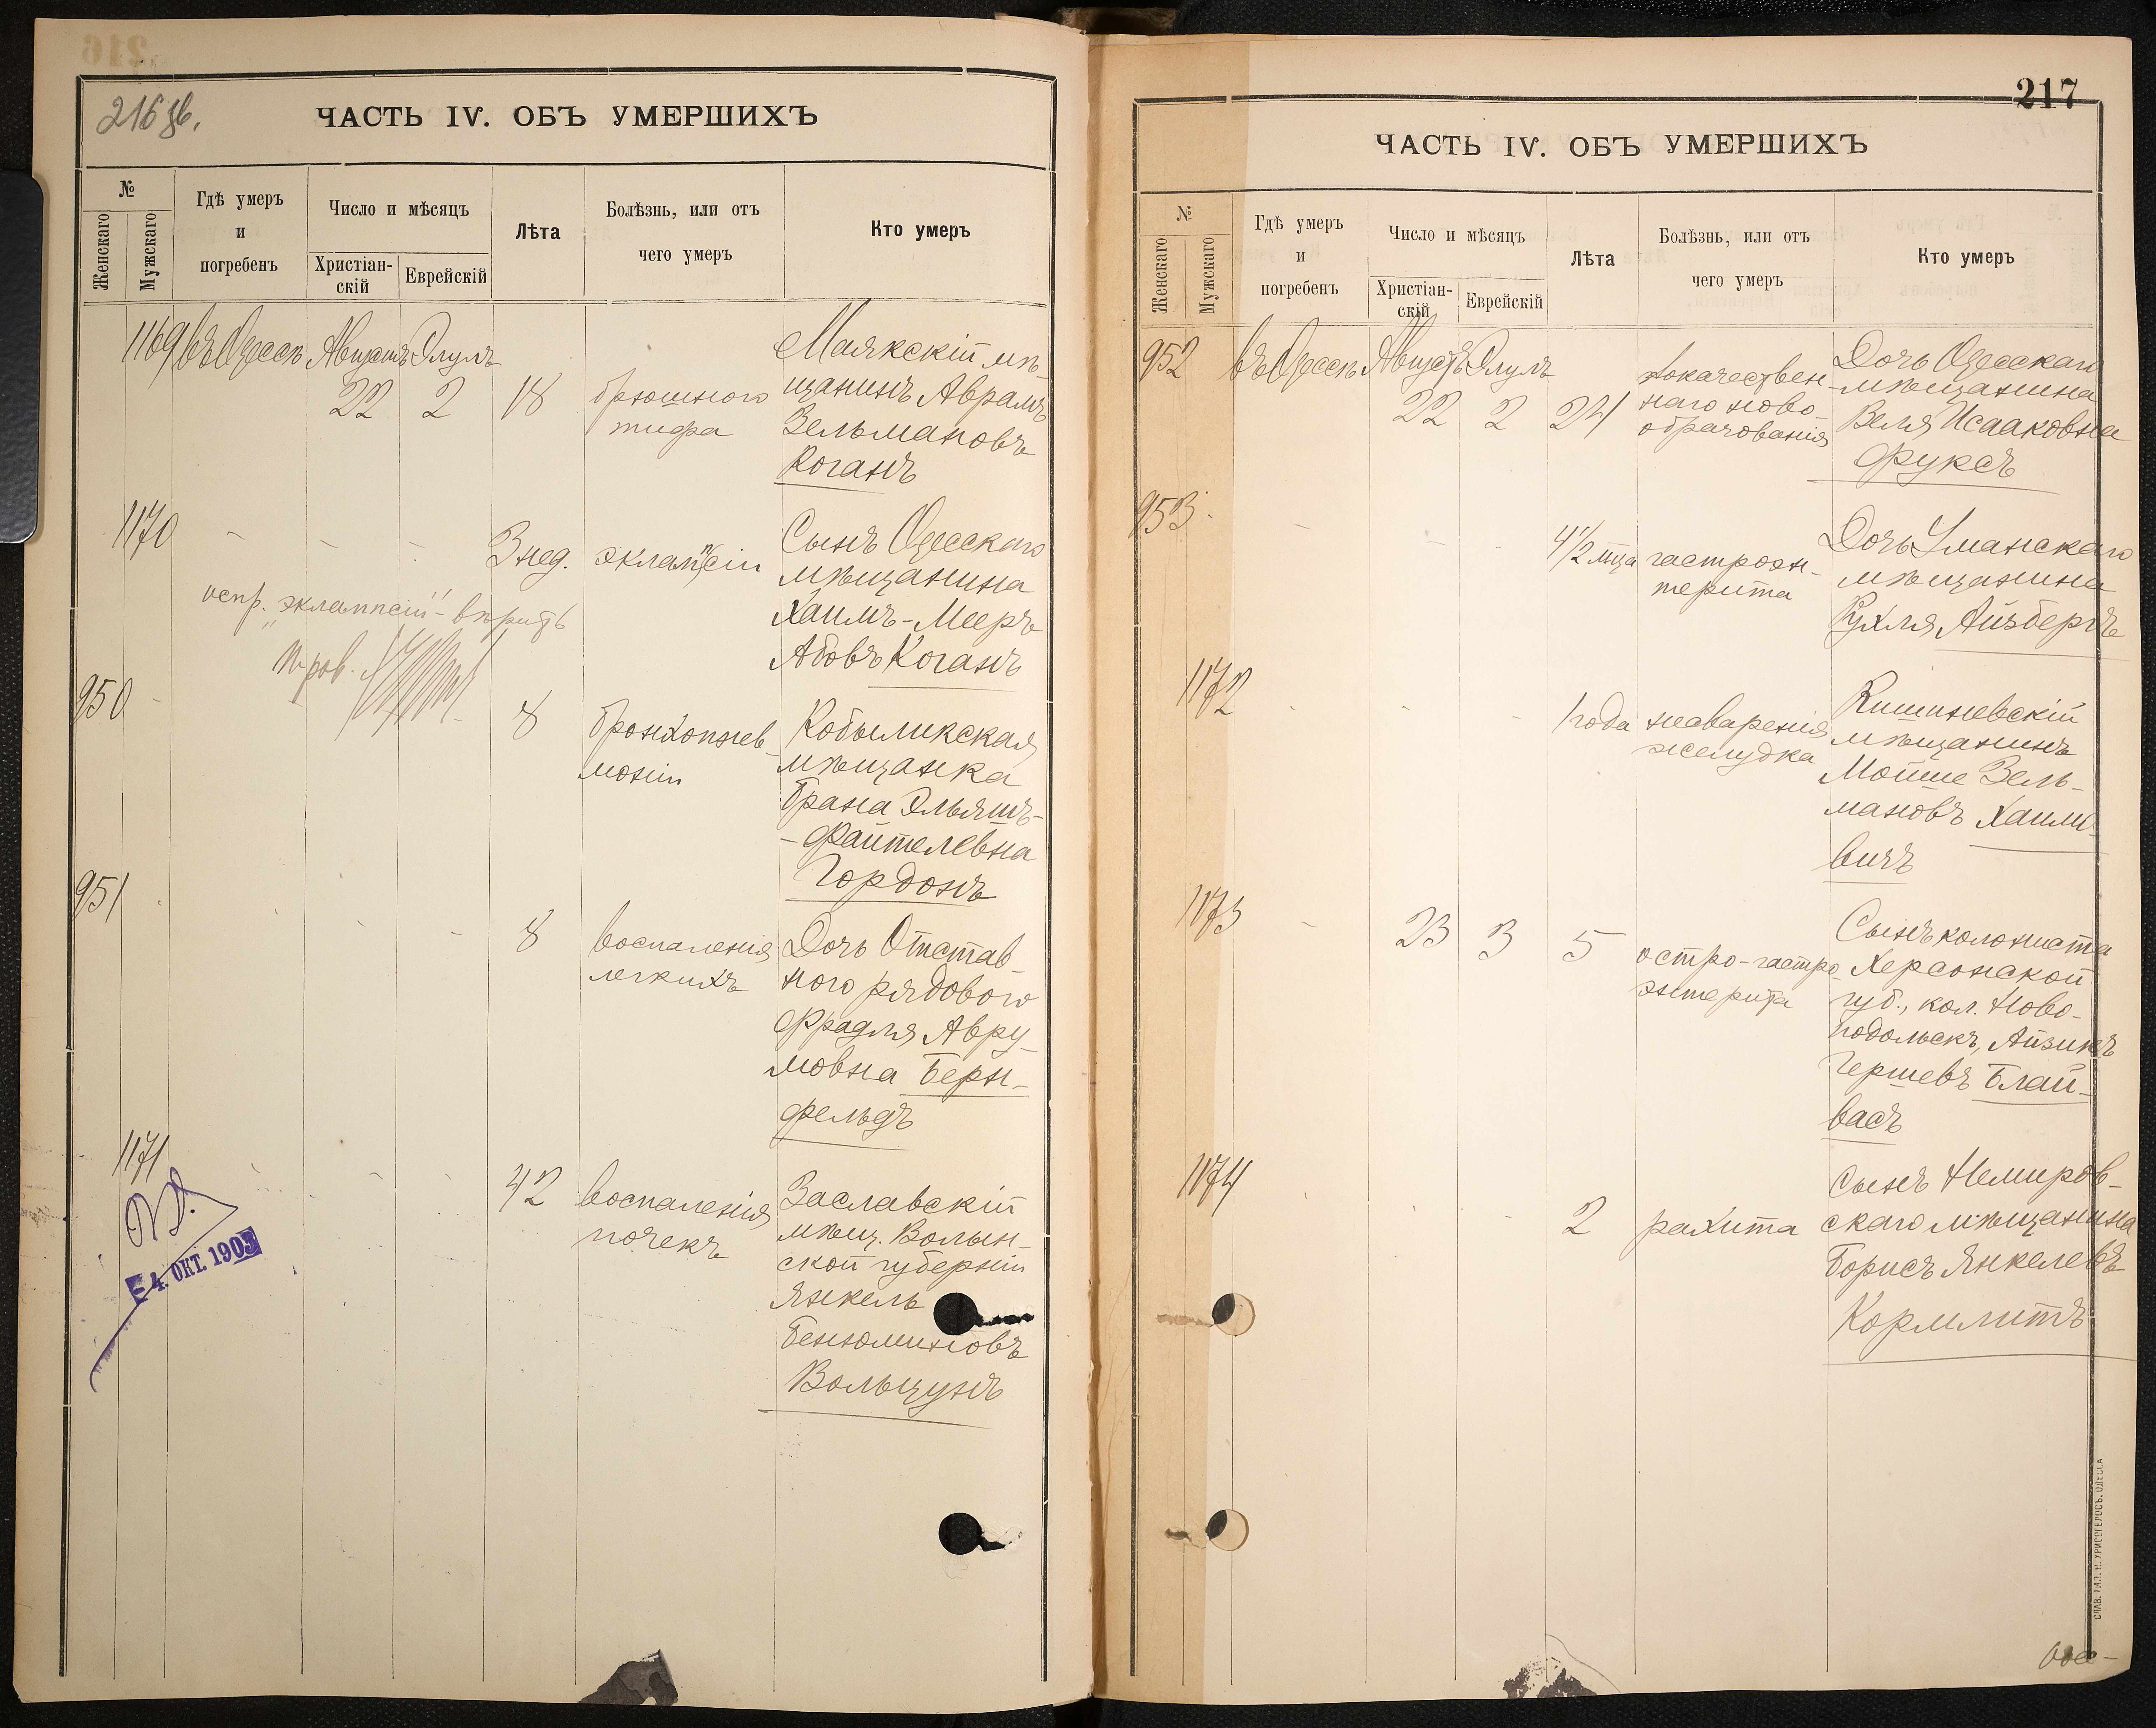 216 зв.
ЧАСТЬ IV. ОБЪ УМЕРШИХЪ
№
Женскаго
Мужскаго
Гдѣ умеръ
и
погребенъ
Число и мѣсяцъ
Христіан-
скій
Еврейскій
Лѣта
Болѣзнь, или отъ
чего умеръ
Кто умеръ
1169 въ Одессѣ Августъ Элулъ
22 2 18 брюшного
тифа
Маякскій мѣ-
щанинъ Аврамъ
Зельмановъ
Коганъ
1170
3 нед. эклампсіи
Сынъ Одесскаго
мѣщанина
Хаимъ-Мееръ
Абовъ Коганъ
испр. „эклампсіи“ - вѣрить
950
8 бронхопнев-
моніи
Кобыликская
мѣщанка
Брана Эльяшъ-
-Файтелевна
Гордонъ
951
8 воспаленія
легкихъ
Дочь Отстав-
ного рядового
Фрадля Авру-
мовна Берн-
фельдъ
1171
42 воспаленія
почекъ
Заславскій
мѣщ. Волын-
ской губерніи
Янкель
Бенюминовъ
Вольцунъ
4 ОКТ. 1903
217
ЧАСТЬ IV. ОБЪ УМЕРШИХЪ
№
Женскаго
Мужскаго
Гдѣ умеръ
и
погребенъ
Число и мѣсяцъ
Христіан-
скій
Еврейскій
Лѣта
Болѣзнь, или отъ
чего умеръ
Кто умеръ
952 въ Одессѣ Августъ Элулъ
22 2 24 злокачествен-
наго ново-
образованія
Дочь Одесскаго
мѣщанина
Веля Исааковна
Фуксъ
953
4 1/2 мца гастроэн-
терита
Дочь Уманскаго
мѣщанина
Рухля Айзбергъ
1172
1 года несваренія
желудка
Кишиневскій
мѣщанинъ
Мойше Зель-
мановъ Хаимо-
вичъ
1173
23 3 5 остро-гастро
энтерита
Сынъ колониста
Херсонской
губ., кол. Ново-
подольскъ, Айзикъ
Гершевъ Блай-
васъ
1174
2 рахита
Сынъ Немиров-
скаго мѣщанина
Борисъ Янкелевъ
Кормлитъ
СЛАВ. ТИП. Н. ХРИСОГЕЛОСЪ. ОДЕССА